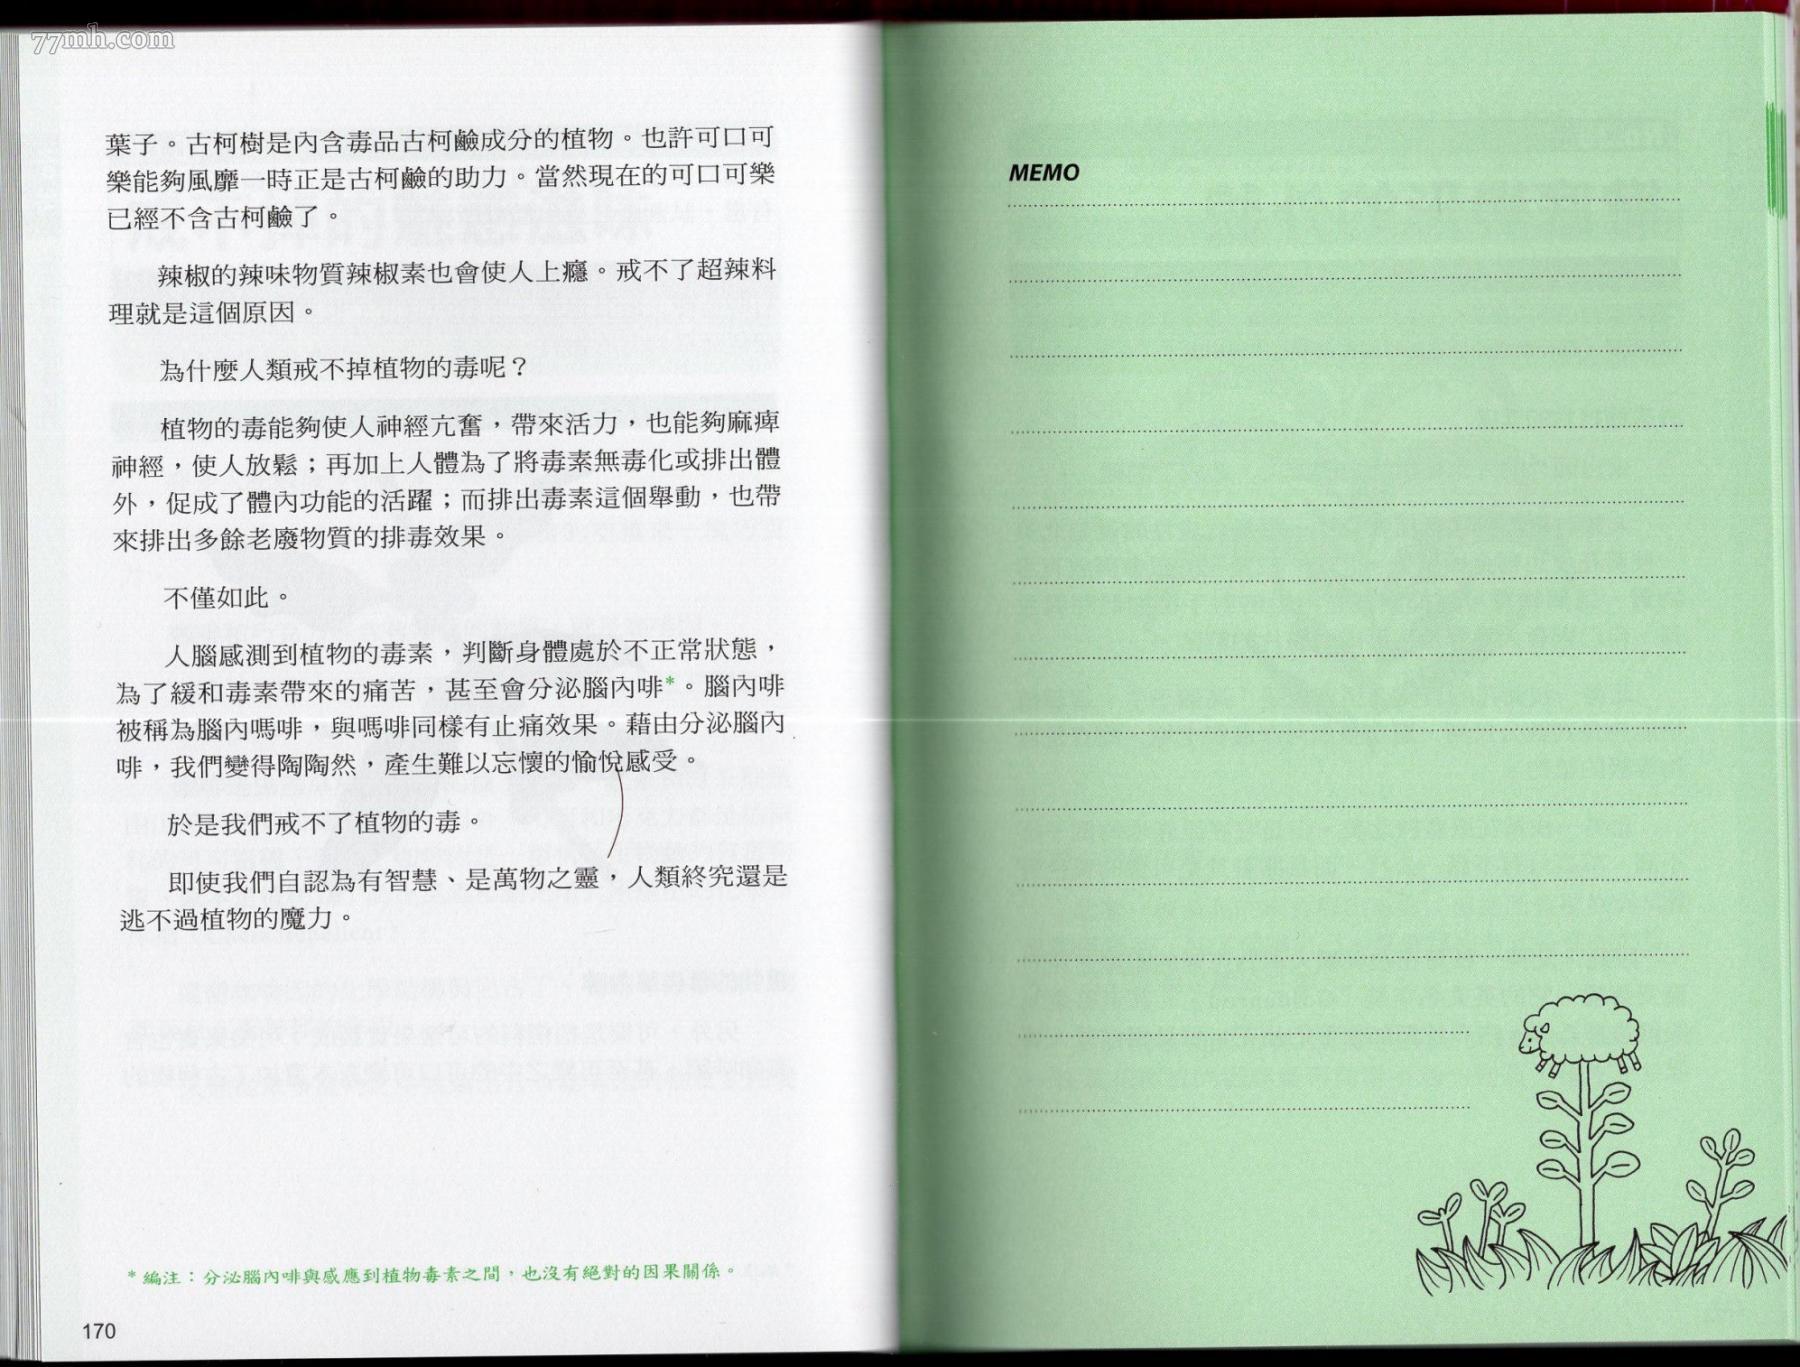 77mh.com
葉子。古柯樹是內含毒品古柯鹼成分的植物。也許可口可
樂能夠風靡一時正是古柯鹼的助力。當然現在的可口可樂
已經不含古柯鹼了。
辣椒的辣味物質辣椒素也會使人上癮。戒不了超辣料
理就是這個原因。
為什麼人類戒不掉植物的毒呢？
植物的毒能夠使人神經亢奮，帶來活力，也能夠麻痺
神經，使人放鬆；再加上人體為了將毒素無毒化或排出體
外，促成了體內功能的活躍；而排出毒素這個舉動，也帶
來排出多餘老廢物質的排毒效果。
不僅如此。
人腦感測到植物的毒素，判斷身體處於不正常狀態，
為了緩和毒素帶來的痛苦，甚至會分泌腦內啡*。腦內啡
被稱為腦內嗎啡，與嗎啡同樣有止痛效果。藉由分泌腦內
啡，我們變得陶陶然，產生難以忘懷的愉悅感受。
於是我們戒不了植物的毒。
即使我們自認為有智慧、是萬物之靈，人類終究還是
逃不過植物的魔力。
* 編注：分泌腦內啡與感應到植物毒素之間，也沒有絕對的因果關係。
170
MEMO